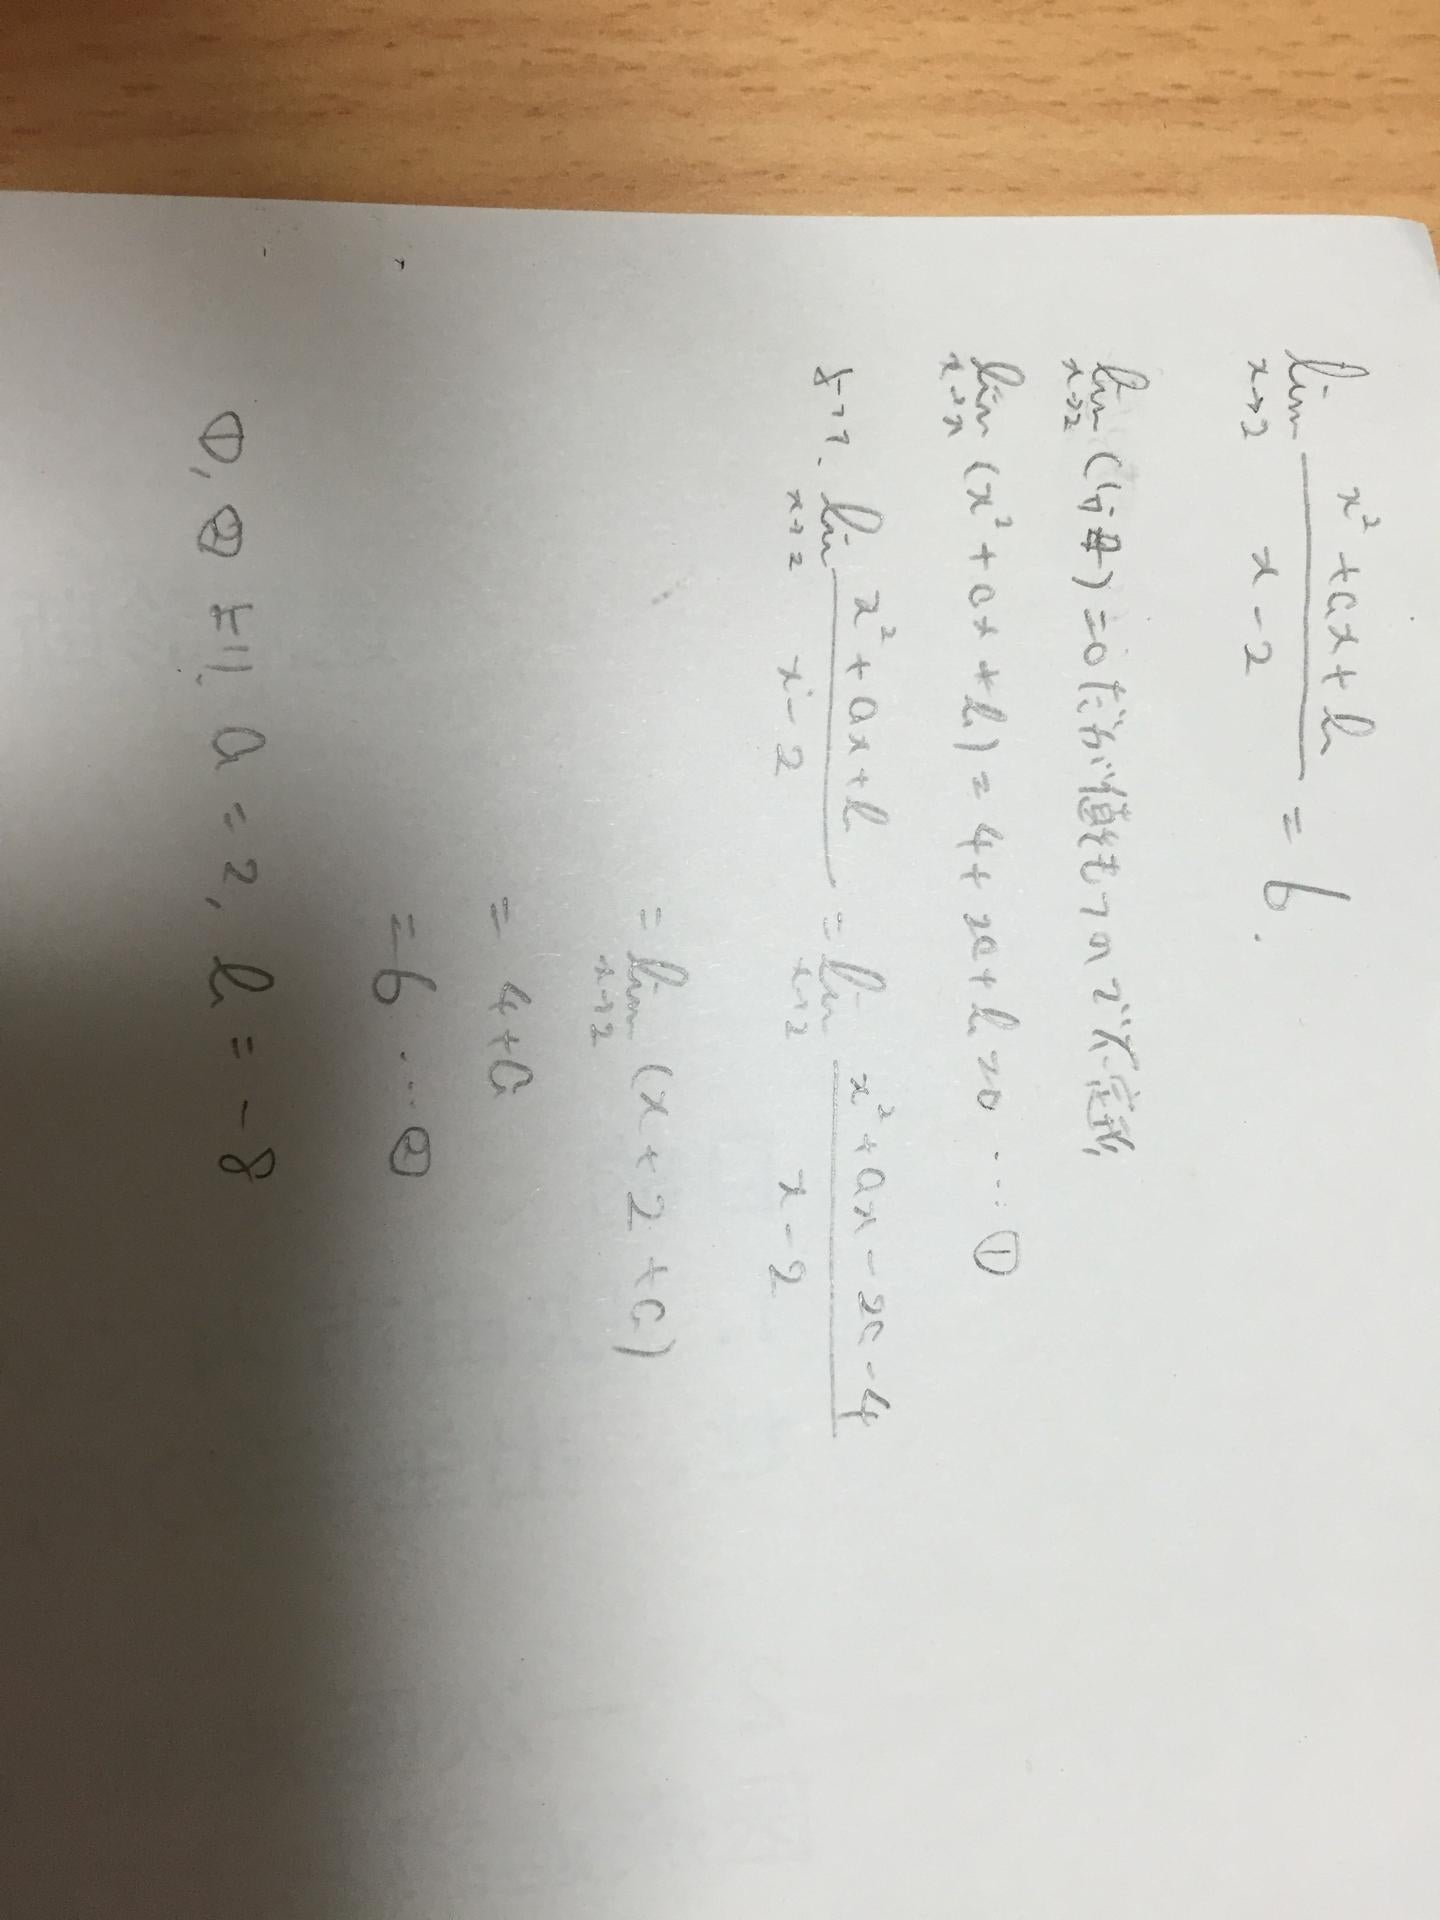 lim x→2 (x²+ax+b)/(x-2) = 6.
lim x→2 (分母)=0だが値をもつので不定形
lim x→x (x²+ax+b)=4+2a+b=0 … ①
よって. lim x→2 (x²+ax+b)/(x-2) = lim x→2 (x²+ax-2a-4)/(x-2)
= lim x→2 (x+2+a)
= 4+a
= 6 … ②
①, ②より. a = 2, b = -8